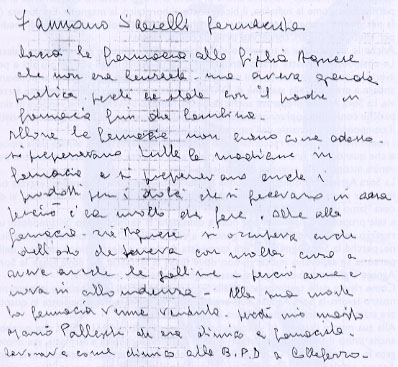 Damiano Scavelli farmacista
lascia la farmacia alla figlia Agnese
che non era laureata - ma aveva grande
pratica perché era stata con il padre in
farmacia fin da bambina.
Allora le farmacie non erano come adesso.
si preparavano tutte le medicine in
farmacia e si preparavano anche i
prodotti per i dolci che si facevano in casa
perciò c'era molto da fare. Oltre alla
farmacia - zia Agnese si occupava anche
dell'orto che teneva con molta cura e
aveva anche le galline - perciò carne e
uova in abbondanza - Alla sua morte
la farmacia venne venduta. perché mio marito
Mario Pallesti che era chimico e farmacista.
lavorava come chimico alla B.P.D a Colleferro.